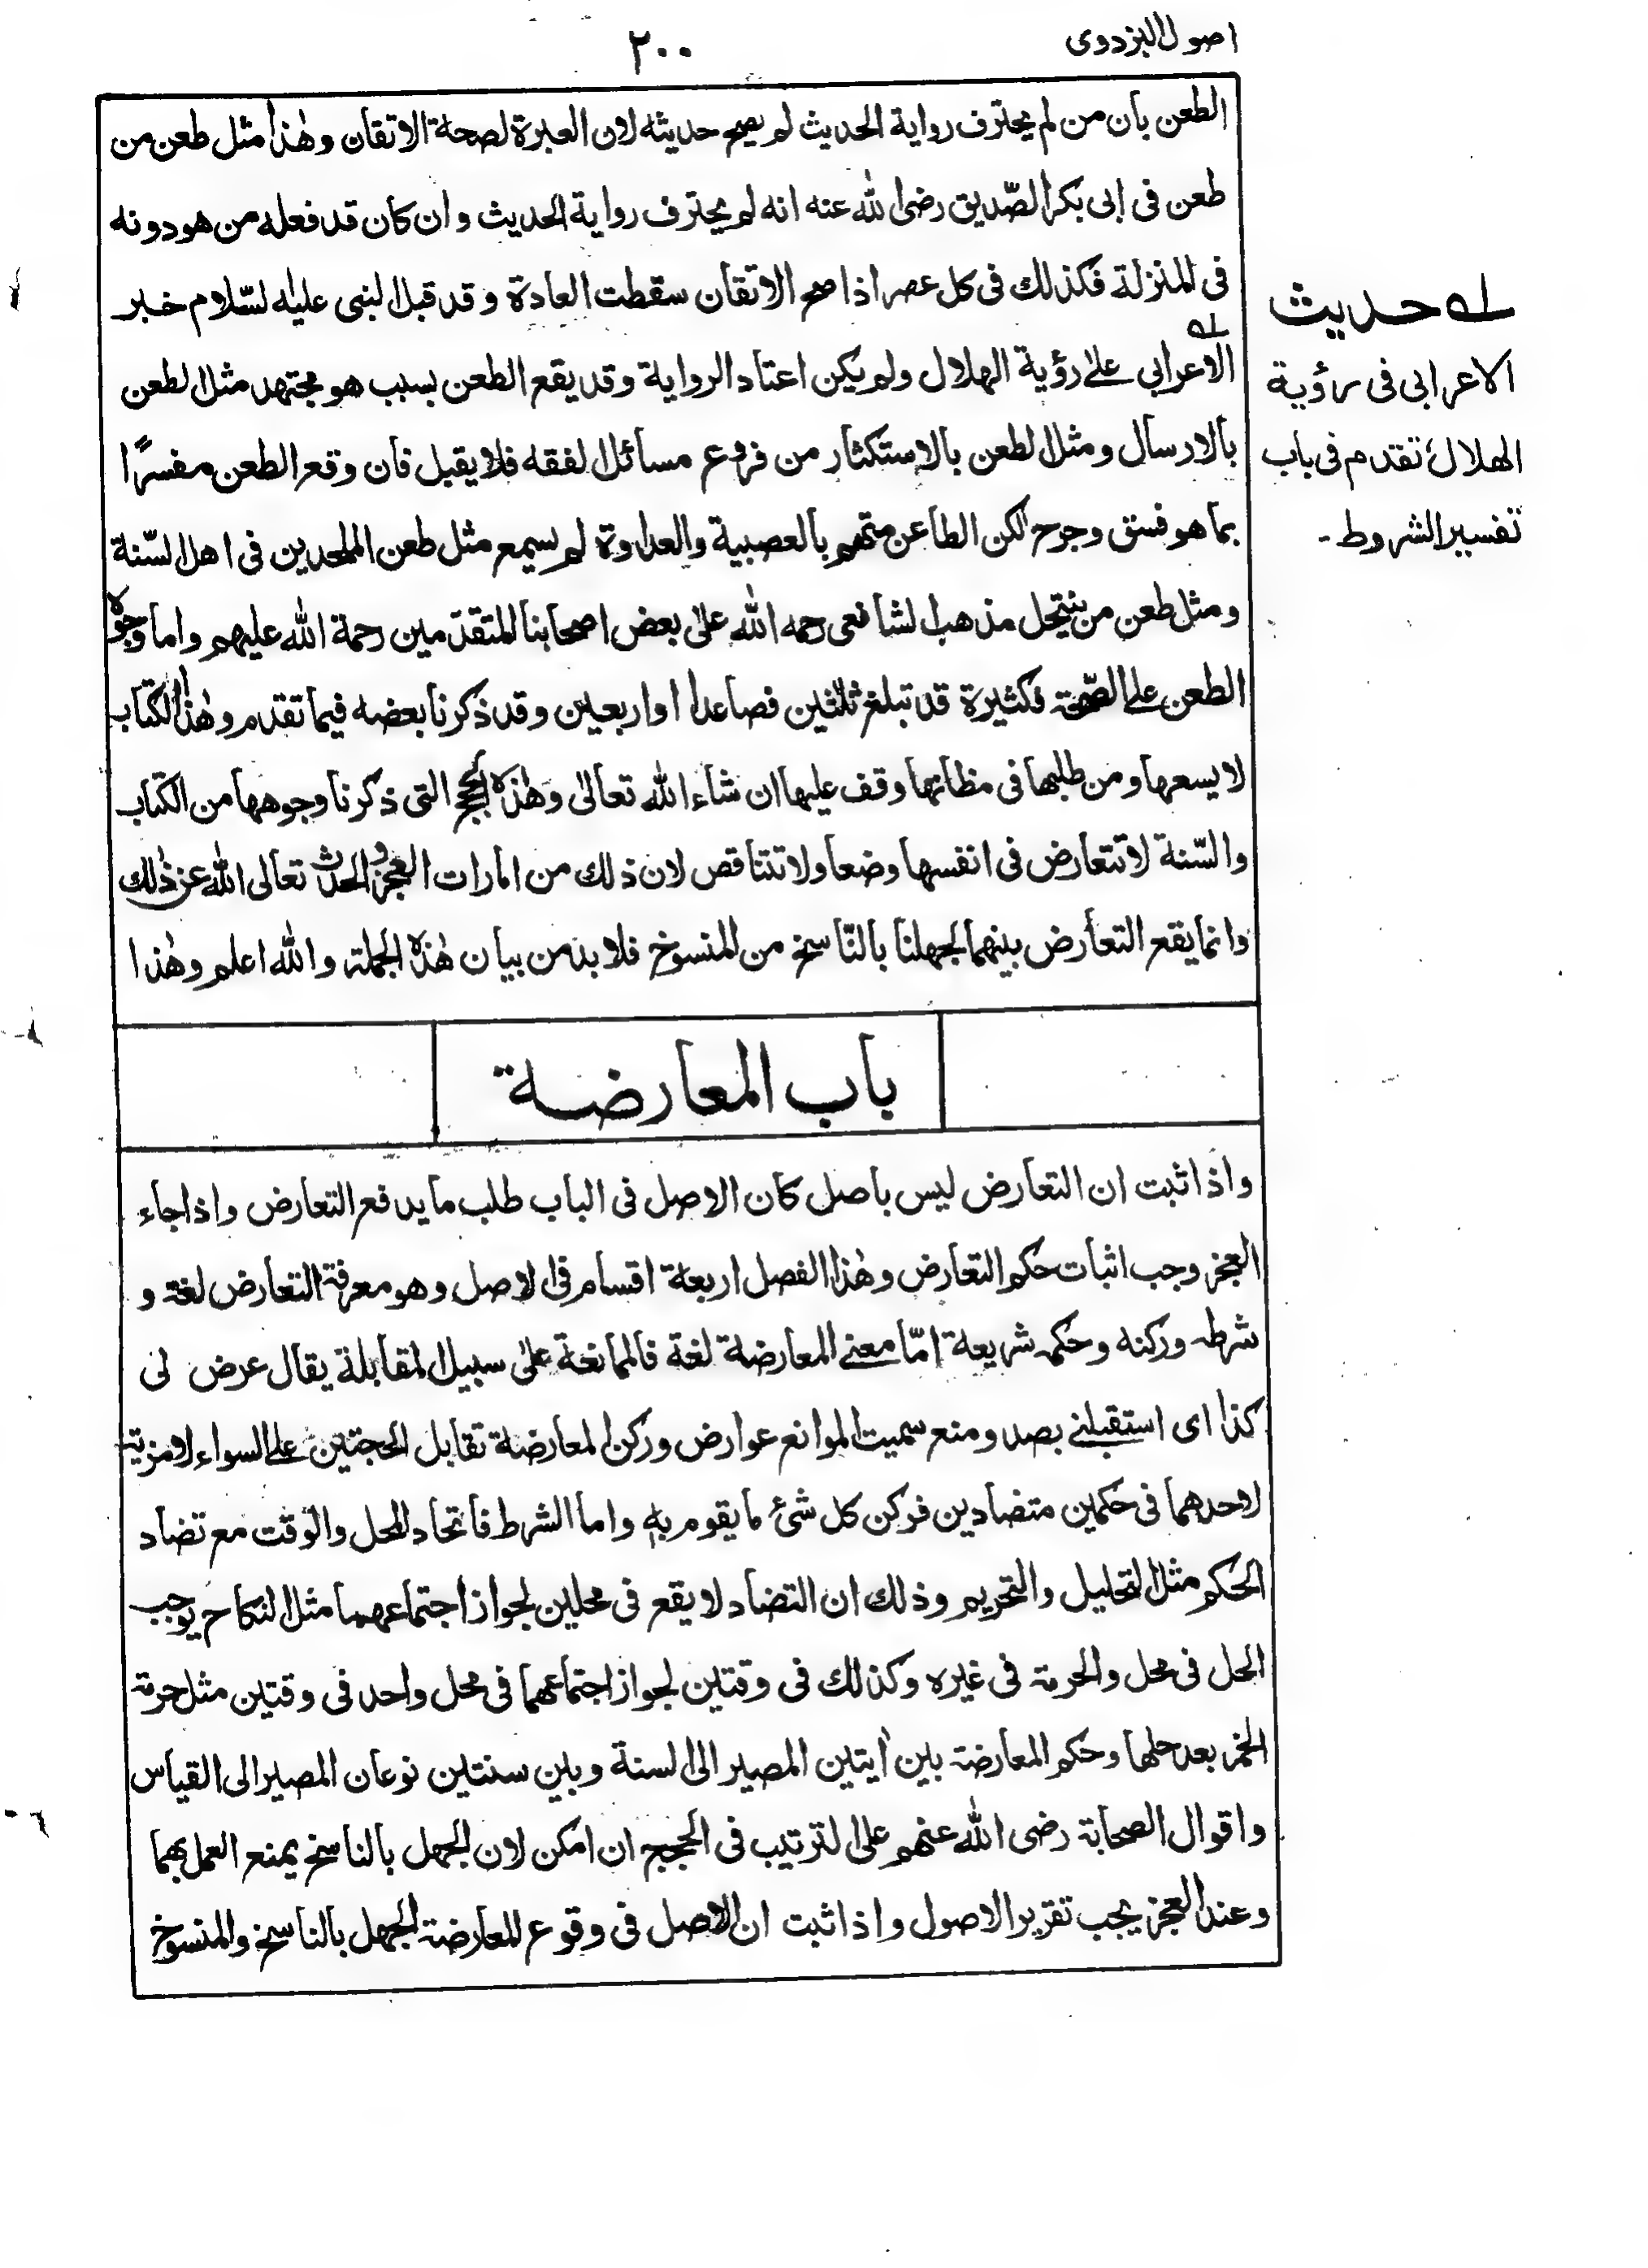 اصول البزدوی
٢٠٠
الطعن بان من لم يحترف رواية الحديث لم يصح حديثه لان العبرة لصحة الاتقان وهٰذا مثل طعن من
طعن فى ابى بكر الصّديق رضى الله عنه انه لم يحترف رواية الحديث وان كان قد فعله من هو دونه
فى المنزلة فكذلك فى كل عصر اذا صح الاتقان سقطت العادة وقد قبل النبى عليه السّلام خبر
الاعرابى على رؤية الهلال ولم يكن اعتاد الرواية وقد يقع الطعن بسبب هو مجتهد مثل الطعن
بالارسال ومثل الطعن بالاستكثار من فروع مسائل الفقه فلا يقبل فان وقع الطعن مفسرًا
بما هو فسق وجرح لكن الطاعن متهم بالعصبية والعداوة لم يسمع مثل طعن الملحدين فى اهل السّنة
ومثل طعن من ينتحل مذهب الشافعى رحمه الله علٰى بعض اصحابنا المتقدمين رحمة الله عليهم واما وجوه
الطعن على الصّحة فكثيرة قد تبلغ ثلٰثين فصاعدا او اربعين وقد ذكرنا بعضه فيما تقدم وهٰذا الكتاب
لا يسعها ومن طلبها فى مظانها وقف عليها ان شاء الله تعالٰى وهٰذه الحجج التى ذكرنا وجوهها من الكتاب
والسّنة لا تتعارض فى انفسها وضعا ولا تتناقض لان ذلك من امارات العجز والحدث تعالى الله عن ذٰلك
وانما يقع التعارض بينهما لجهلنا بالنّاسخ من المنسوخ فلا بد من بيان هٰذه الجملة والله اعلم وهٰذا
باب المعارضة
واذا ثبت ان التعارض ليس باصل كان الاصل فى الباب طلب ما يدفع التعارض واذا جاء
العجز وجب اثبات حكم التعارض وهٰذا الفصل اربعة اقسام فى الاصل وهو معرفة التعارض لغة و
شرطه وركنه وحكمه شريعة امّا معنے المعارضة لغة فالممانعة علٰى سبيل المقابلة يقال عرض لى
كذا اى استقبلنے بصد ومنع سميت الموانع عوارض وركن المعارضة تقابل الحجتين على السواء لا مزية
لاحدهما فى حكمين متضادين فركن كل شئ ما يقوم به واما الشرط فاتحاد المحل والوقت مع تضاد
الحكم مثل التحليل والتحريم وذلك ان التضاد لا يقع فى محلين لجواز اجتماعهما مثل النكاح يوجب
الحل فى محل والحرمة فى غيره وكذلك فى وقتين لجواز اجتماعهما فى محل واحد فى وقتين مثل حرمة
الخمر بعد حلها وحكم المعارضة بين اٰيتين المصير الى السنة وبين سنتين نوعان المصير الى القياس
واقوال الصحابة رضى الله عنهم على الترتيب فى الحجج ان امكن لان الجهل بالناسخ يمنع العمل بهما
وعند العجز يجب تقرير الاصول واذا ثبت ان الاصل فى وقوع المعارضة الجهل بالناسخ والمنسوخ
لـه حديث
الاعرابى فى رؤية
الهلال تقدم فى باب
تفسير الشروط۔